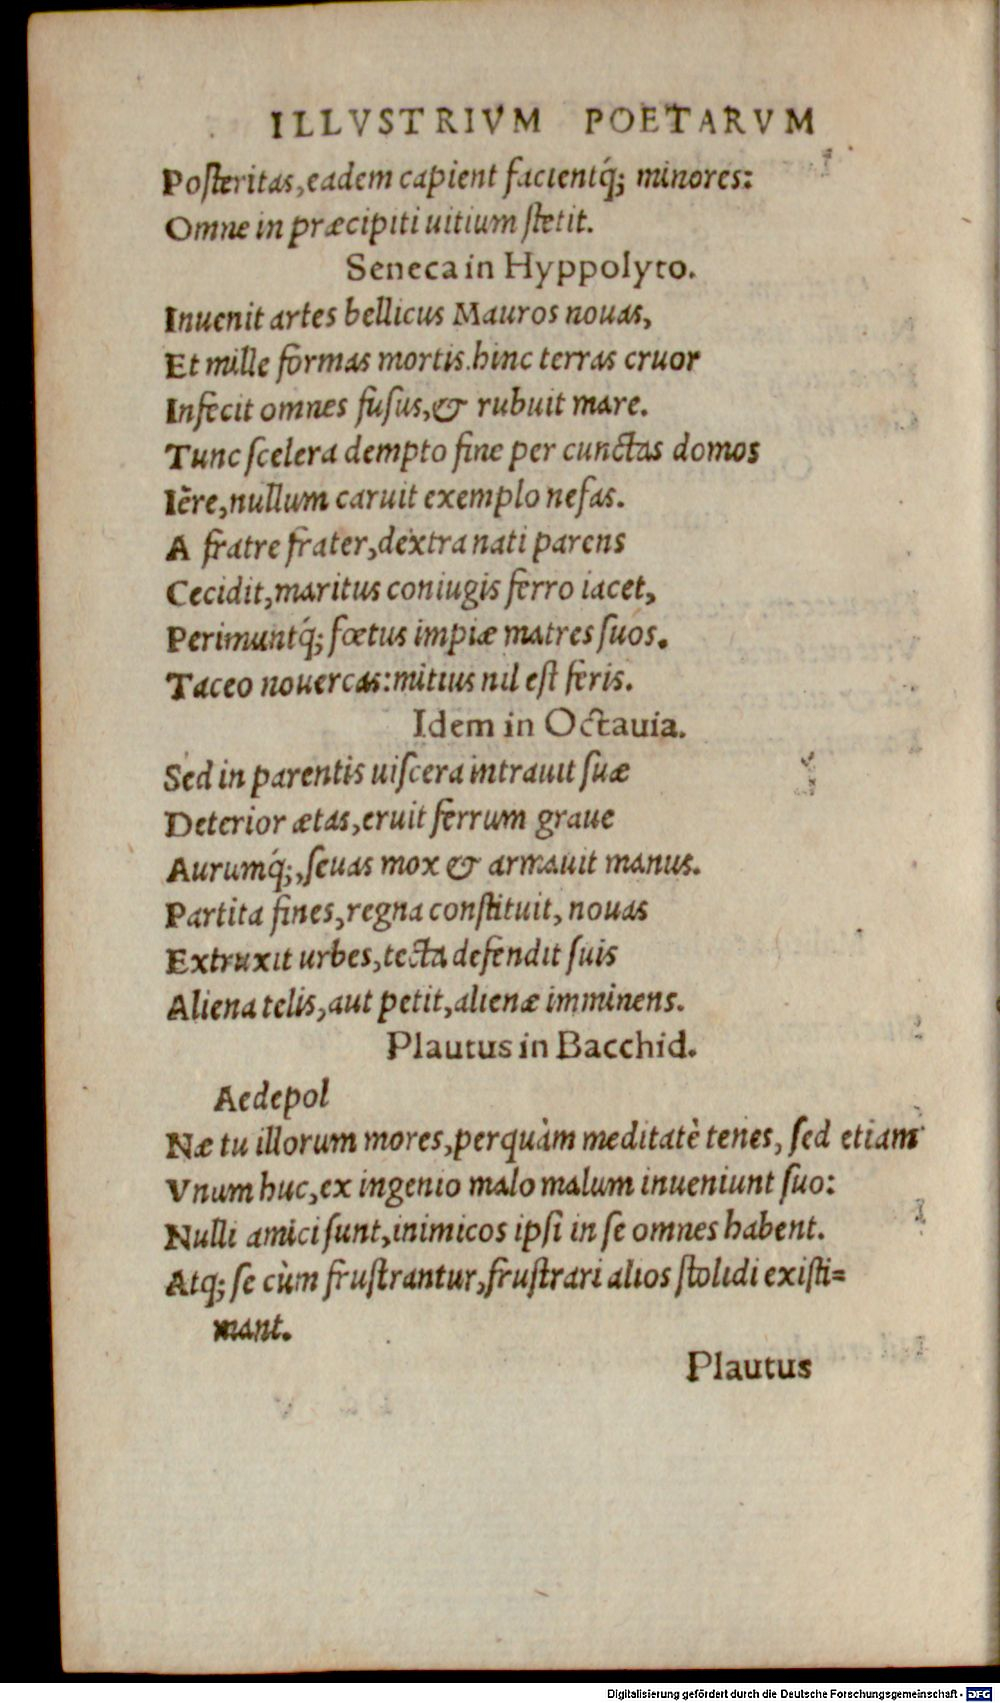 ILLVSTRIVM POETARVM
Posteritas, eadem capient facientq́; minores:
Omne in præcipiti uitium stetit.
Seneca in Hyppolyto.
Inuenit artes bellicus Mauros nouas,
Et mille formas mortis. hinc terras cruor
Infecit omnes fusus, & rubuit mare.
Tunc scelera dempto fine per cunctas domos
Iêre, nullum caruit exemplo nefas.
A fratre frater, dextra nati parens
Cecidit, maritus coniugis ferro iacet,
Perimuntq́; fœtus impiæ matres suos.
Taceo nouercas: mitius nil est feris.
Idem in Octauia.
Sed in parentis uiscera intrauit suæ
Deterior ætas, eruit ferrum graue
Aurumq́;, seuas mox & armauit manus.
Partita fines, regna constituit, nouas
Extruxit urbes, tecta defendit suis
Aliena telis, aut petit, alienæ imminens.
Plautus in Bacchid.
Aedepol
Næ tu illorum mores, perquàm meditatè tenes, sed etiam
Vnum huc, ex ingenio malo malum inueniunt suo:
Nulli amici sunt, inimicos ipsi in se omnes habent.
Atq; se cùm frustrantur, frustrari alios stolidi existi=
mant.
Plautus
Digitalisierung gefördert durch die Deutsche Forschungsgemeinschaft - DFG